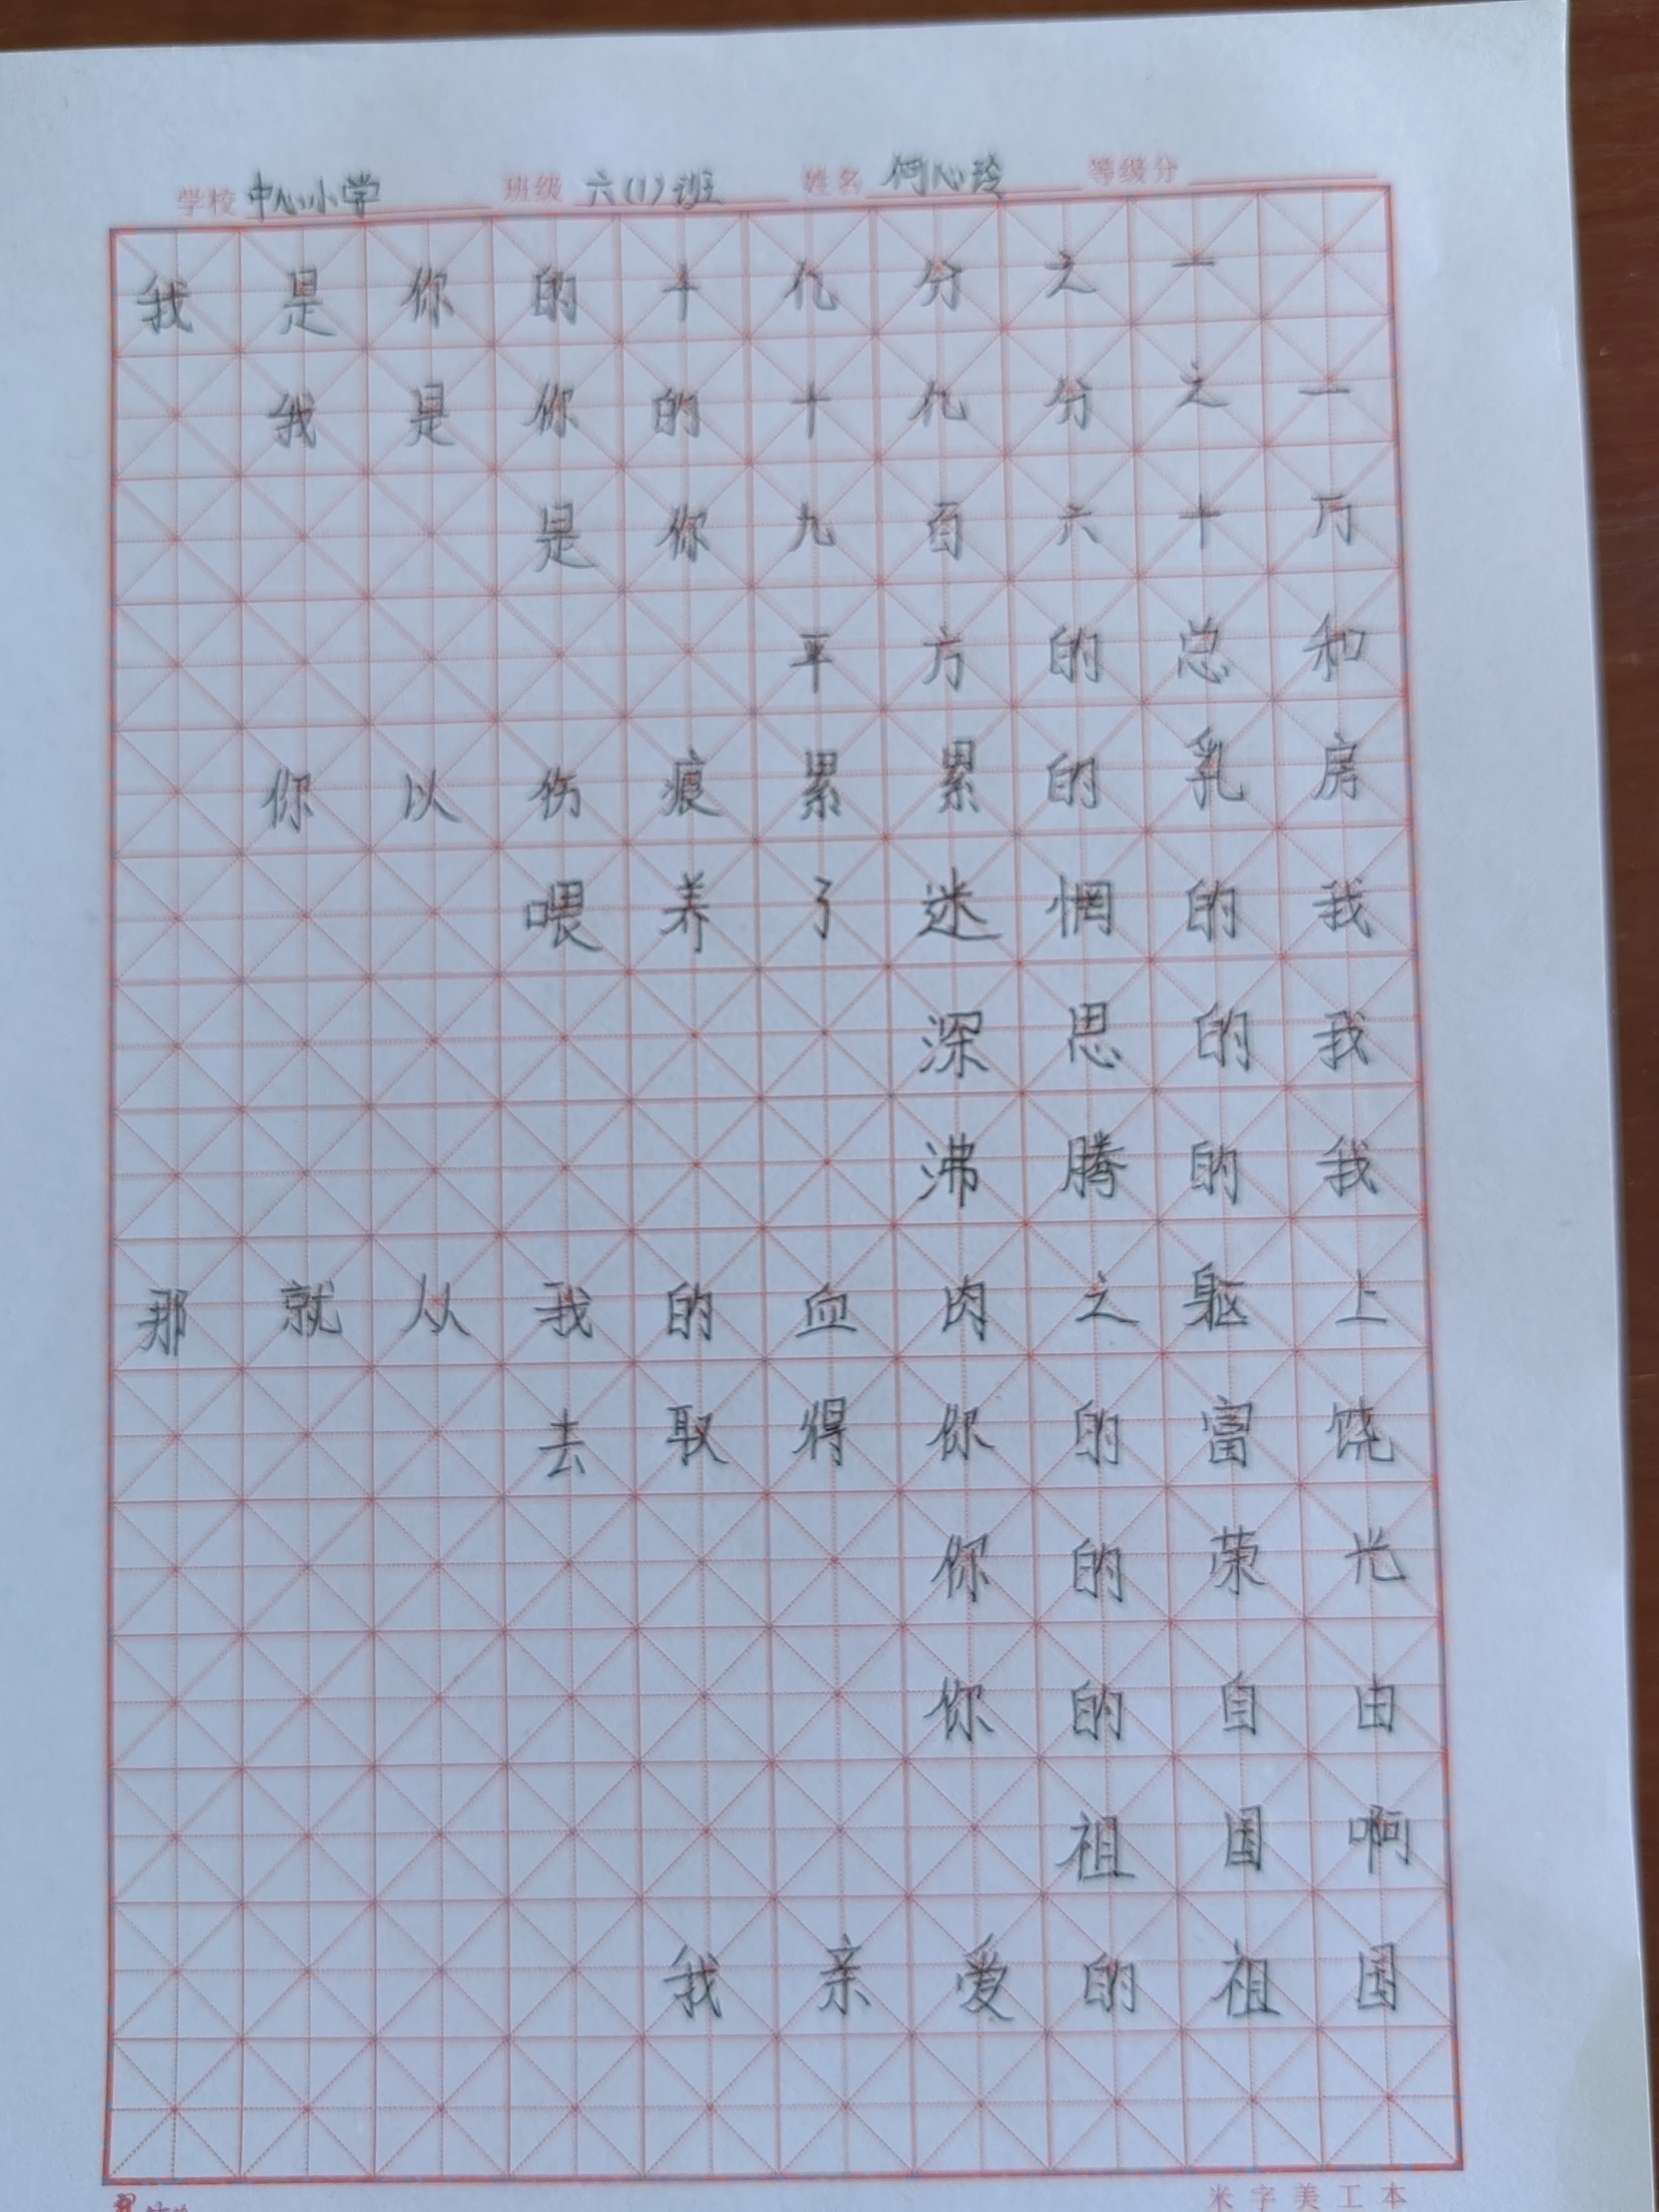 学校 中心小学 班级 六(1)班 姓名 何心玲 等级分
我是你的十亿分之一
我是你的十亿分之一
是你九百六十万
平方的总和
你以伤痕累累的乳房
喂养了迷惘的我
深思的我
沸腾的我
那就从我的血肉之躯上
去取得你的富饶
你的荣光
你的自由
祖国啊
我亲爱的祖国
米字美工本